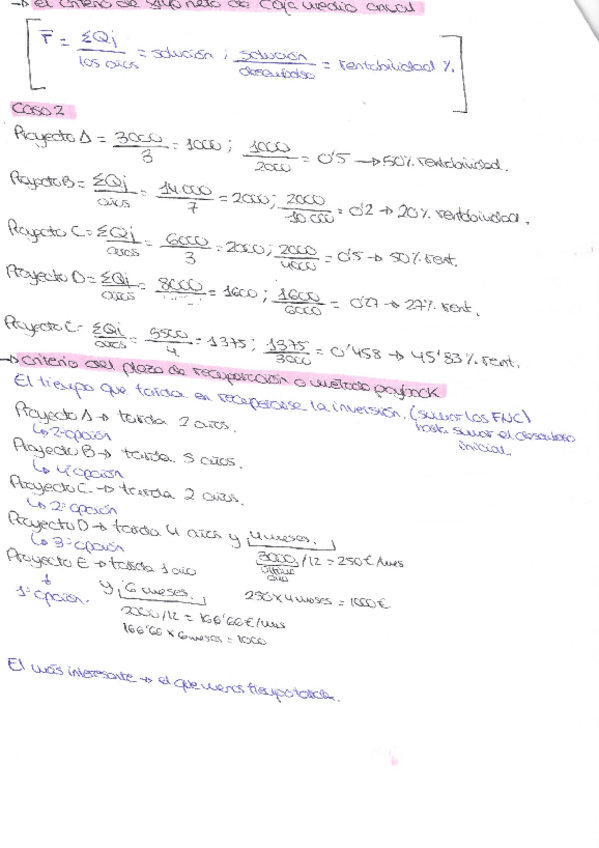 → el criterio de flujo neto de caja medio anual
r̄ = ΣQj / los años = solución ; solución / desembolso = rentabilidad %.
Caso 2
Proyecto A = 3000 / 3 = 1000 ; 1000 / 2000 = 0'5 → 50% rentabilidad.
Proyecto B = ΣQj / años = 14.000 / 7 = 2000 ; 2000 / 10.000 = 0'2 → 20% rentabilidad.
Proyecto C = ΣQj / años = 6000 / 3 = 2000 ; 2000 / 4000 = 0'5 → 50% rent.
Proyecto D = ΣQj / años = 8000 / = 1600 ; 1600 / 6000 = 0'27 → 27% rent.
Proyecto E = ΣQj / años = 5500 / 4 = 1375 ; 1375 / 3000 = 0'458 → 45'83% rent.
→ Criterio del plazo de recuperación o método payback
El tiempo que tarda en recuperarse la inversión. (sumar los FNC)
hasta sumar el desembolso
inicial
Proyecto A → tarda 2 años.
↳ 2ª opción
Proyecto B → tarda 5 años.
↳ 4ª opción
Proyecto C → tarda 2 años.
↳ 2ª opción
Proyecto D → tarda 4 años y 4 meses.
↳ 3ª opción
3000 / último año /12 = 250 €/mes
Proyecto E → tarda 1 año
y 6 meses.
250 x 4 meses = 1000 €
1ª opción.
2000/12 = 166'66 €/mes
166'66 x 6 meses = 1000
El más interesante → el que menos tiempo tarda.